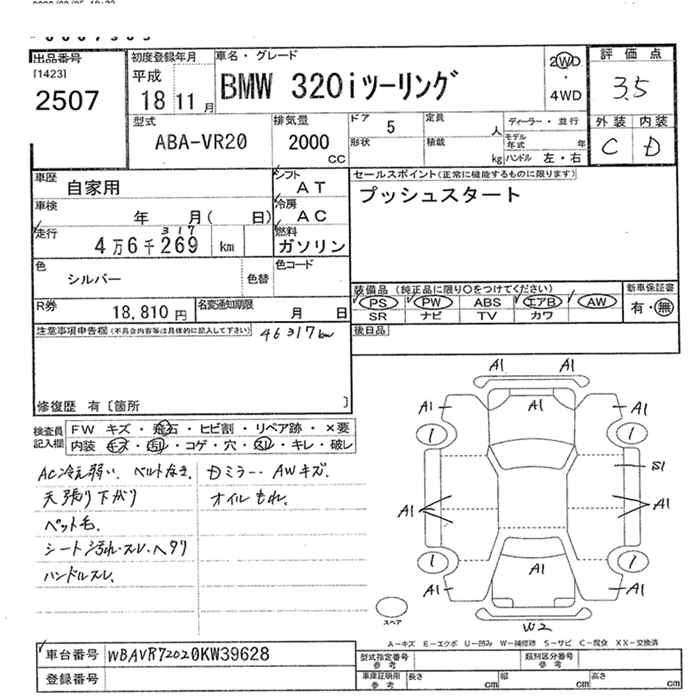 出品番号
[1423]
2507
初度登録年月
平成
18 11 月
車名・グレード
BMW 320iツーリング
2WD
・
4WD
評価点
3.5
外装 内装
C D
型式
ABA-VR20
排気量
2000
CC
ドア 5
形状
定員 人
積載 kg
ディーラー・並行
モデル年式 年
ハンドル 左・右
車歴 自家用
シフト AT
車検 年 月( 日)
冷房 AC
走行 317
4万6千269 km
燃料 ガソリン
色 シルバー 色替
色コード
R券 18,810円
名変通知期限 月 日
セールスポイント(正常に機能するものに限ります)
プッシュスタート
装備品 (純正品に限り○をつけてください)
PS PW ABS エアB AW
SR ナビ TV カワ
新車保証書
有・無
後日品
注意事項申告欄(不具合内容等は具体的に記入して下さい)
46317km
修復歴 有〔箇所 〕
検査員記入欄
FW キズ・飛石・ヒビ割・リペア跡・×要
内装 キズ・汚れ・コゲ・穴・スレ・キレ・破レ
AC冷え弱い、ベルトなき、
天張り下がり
ペット毛、
シート汚れ・スレ・ヘタリ
ハンドルスレ、
Dミラー・AWキズ、
オイルもれ、
A1
A1
A1 A1
1 1
S1
A1 A1
1 1
A1
A1 A1
W2
スペア
A-キズ E-エクボ U-凹み W-補修跡 S-サビ C-腐食 XX-交換済
車台番号 WBAVR72020KW39628
登録番号
型式指定番号 参考
類別区分番号 参考
車庫証明用 参考
長さ cm 幅 cm 高さ cm